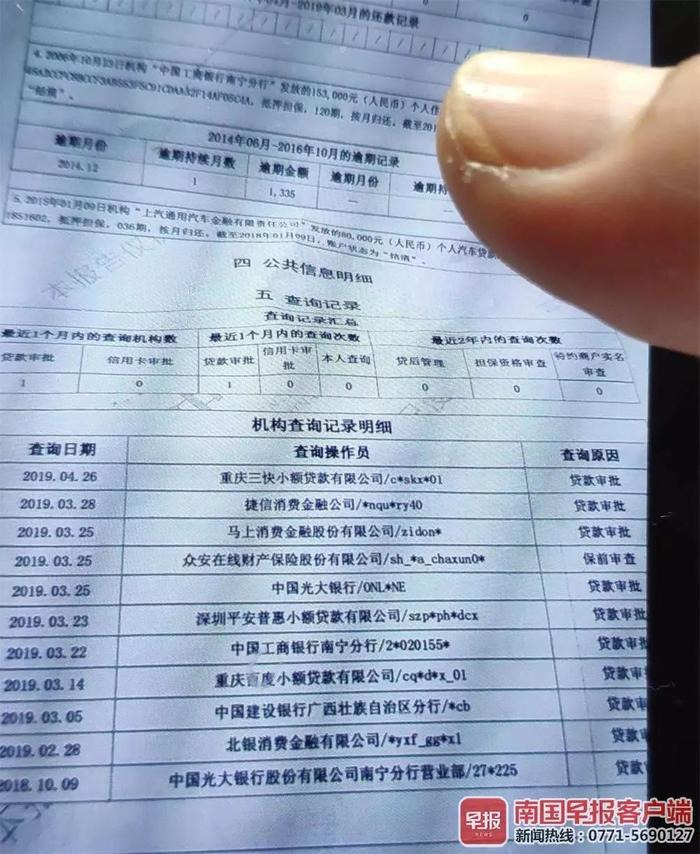 -2019年03月的还款记录
/ / / / / / / / / /
0
0
4.2006年10月23日机构“中国工商银行南宁分行”发放的153,000元(人民币)个人住
抵押担保,120期,按月归还,截至201
“结清”。
2014年06月-2016年10月的逾期记录
逾期月份 逾期持续月数 逾期金额 逾期月份 逾期持
2014.12 1 1,335 — —
5.2015年01月09日机构“上汽通用汽车金融有限责任公司”发放的80,000元(人民币)个人汽车贷款
1851602,抵押担保,036期,按月归还,截至2018年01月09日,账户状态为“结清”。
四 公共信息明细
五 查询记录
查询记录汇总
最近1个月内的查询机构数 最近1个月内的查询次数 最近2年内的查询次数
贷款审批 信用卡审批 贷款审批 信用卡审批 本人查询 贷后管理 担保资格审查 特约商户实名审查
1 0 1 0 0 0 0 0
机构查询记录明细
查询日期 查询操作员 查询原因
2019.04.26 重庆三快小额贷款有限公司/c*skx*01 贷款审批
2019.03.28 捷信消费金融公司/*nqu*ry40 贷款审批
2019.03.25 马上消费金融股份有限公司/zidon* 贷款审批
2019.03.25 众安在线财产保险股份有限公司/sh_*a_chaxun0* 保前审查
2019.03.25 中国光大银行/ONL*NE 贷款审批
2019.03.23 深圳平安普惠小额贷款有限公司/szp*ph*dcx 贷款审批
2019.03.22 中国工商银行南宁分行/2*020155* 贷款审批
2019.03.14 重庆百度小额贷款有限公司/cq*d*x_01 贷款审
2019.03.05 中国建设银行广西壮族自治区分行/*cb 贷款审
2019.02.28 北银消费金融有限公司/*yxf_gg*xl 贷款审
2018.10.09 中国光大银行股份有限公司南宁分行营业部/27*225 贷款
早报
NEWS
南国早报客户端
新闻热线:0771-5690127